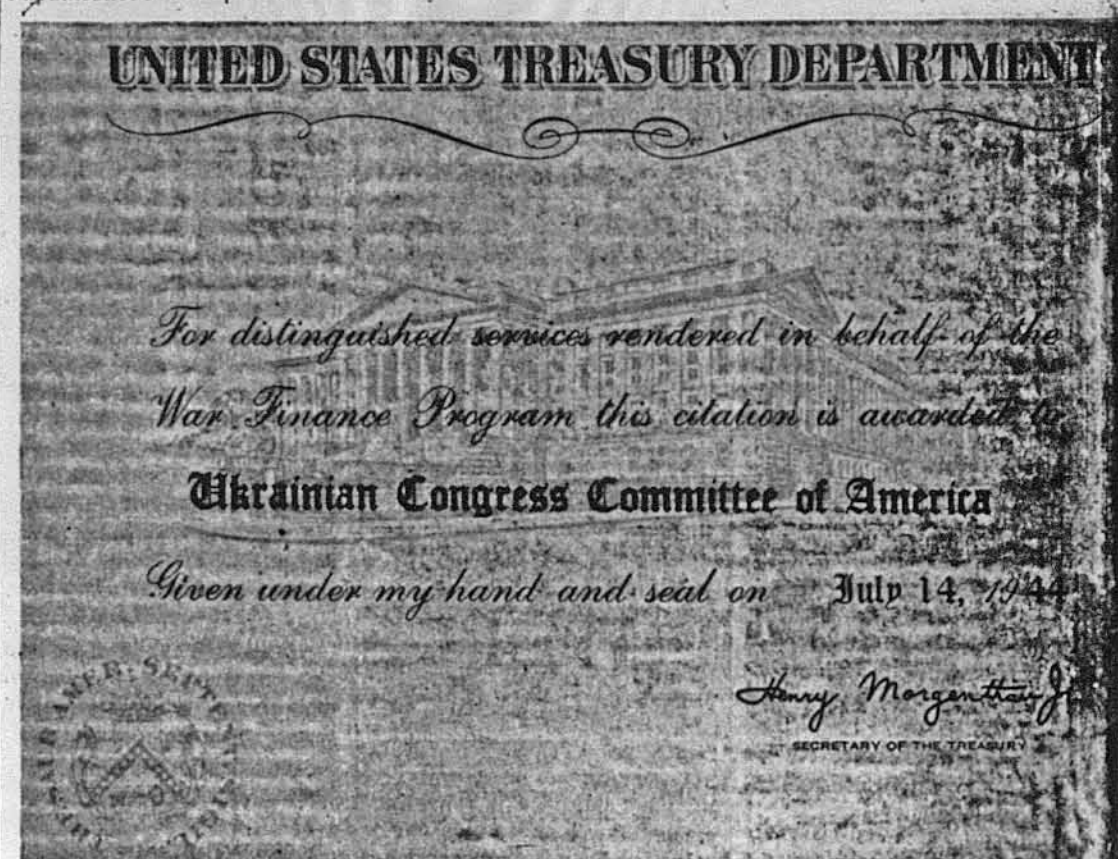 UNITED STATES TREASURY DEPARTMENT
For distinguished services rendered in behalf of the
War Finance Program this citation is awarded to
Ukrainian Congress Committee of America
Given under my hand and seal on July 14, 1944
Henry Morgenthau Jr
SECRETARY OF THE TREASURY
AMER. SEPT